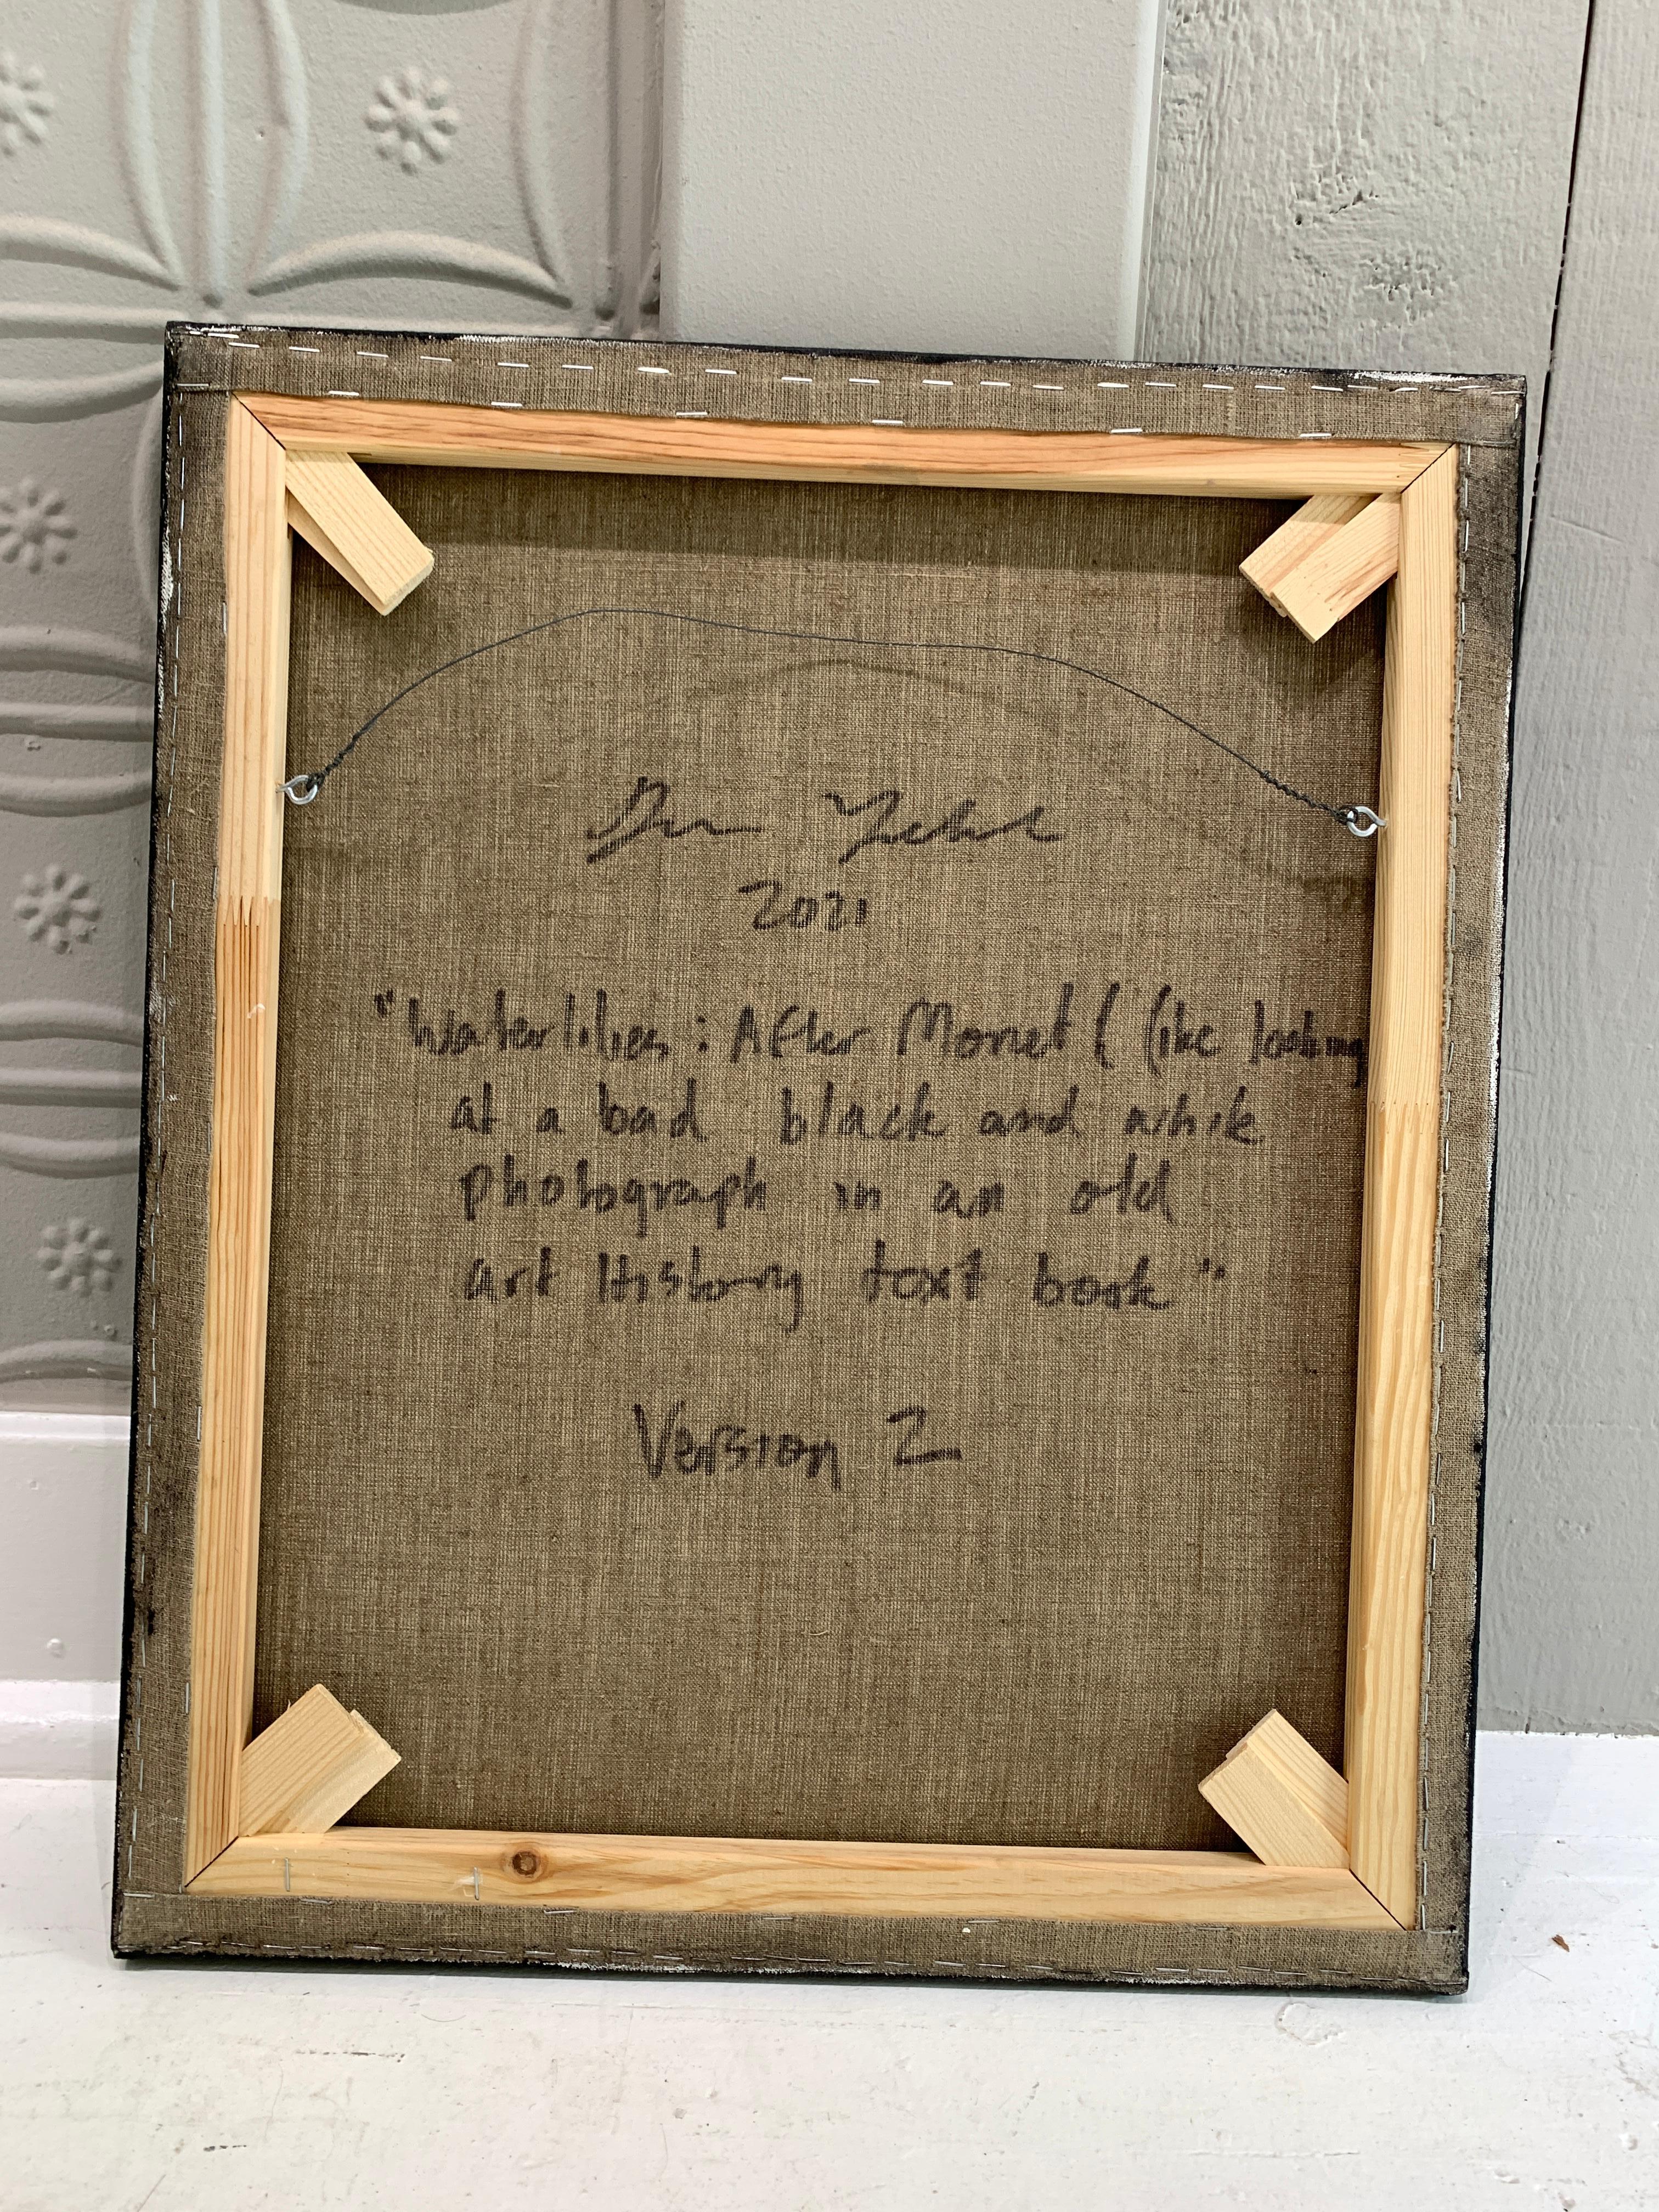 2021
"Waterlilies: After Monet ( (like looking
at a bad black and white
photograph in an old
art History text book"
Version 2